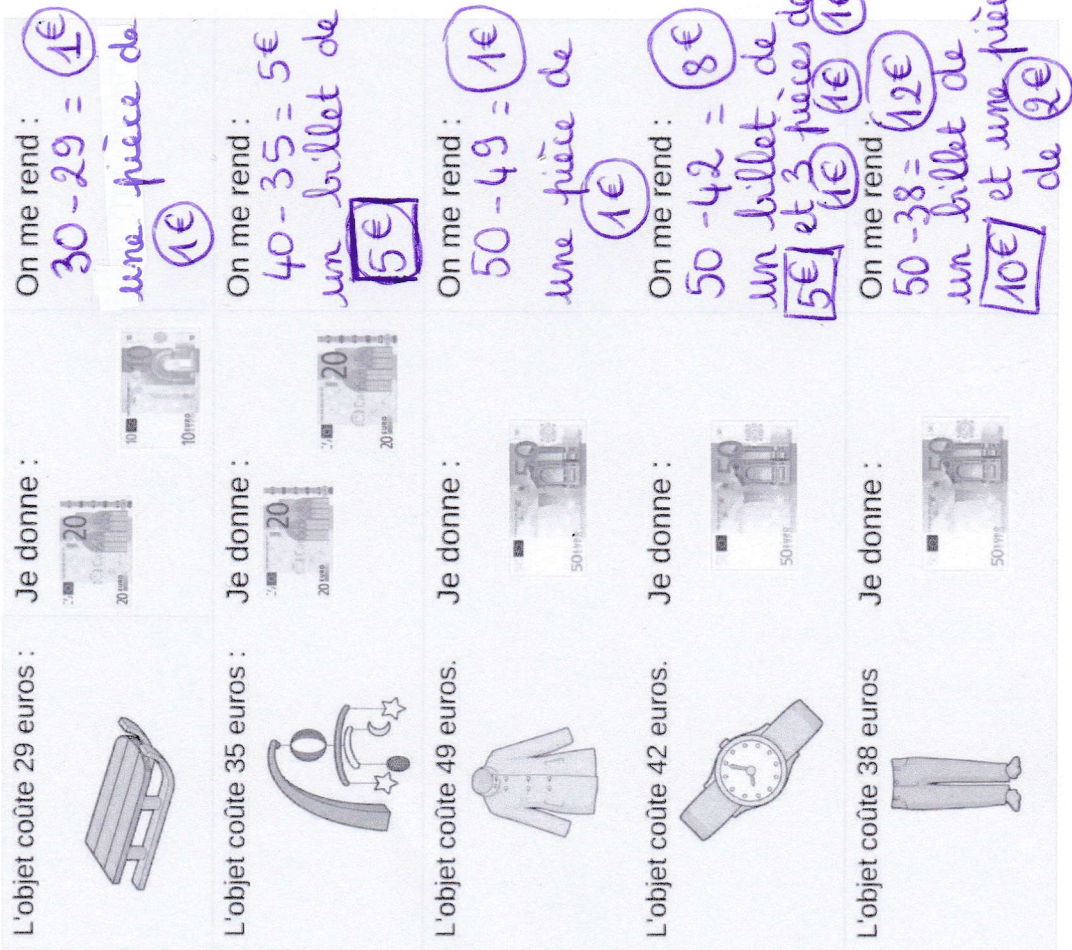 L'objet coûte 29 euros :
Je donne :
20
20 EURO
10
10 EURO
On me rend :
30 - 29 = 1€
une pièce de
1€
L'objet coûte 35 euros :
Je donne :
20
20 EURO
20
20 EURO
On me rend :
40 - 35 = 5€
un billet de
5€
L'objet coûte 49 euros.
Je donne :
50
50 EURO
On me rend :
50 - 49 = 1€
une pièce de
1€
L'objet coûte 42 euros.
Je donne :
50
50 EURO
On me rend :
50 - 42 = 8€
un billet de
5€ et 3 pièces de
1€ 1€ 1€
L'objet coûte 38 euros
Je donne :
50
50 EURO
On me rend :
50 - 38 = 12€
un billet de
10€ et une pièce
de 2€